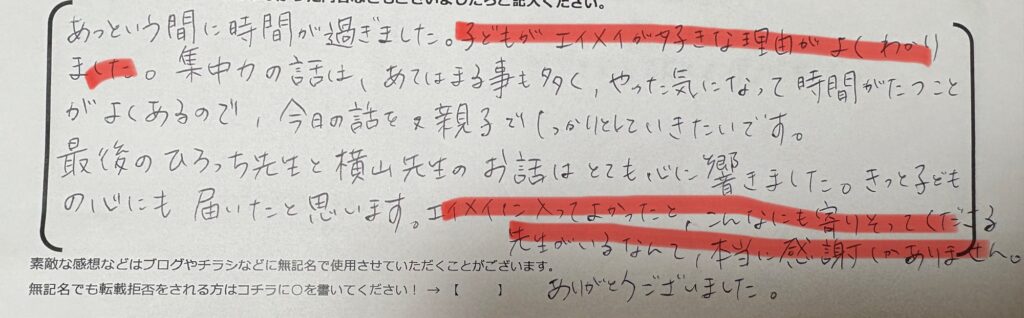 あっという間に時間が過ぎました。子どもがエイメイが好きな理由がよくわかり
ました。集中力の話は、あてはまる事も多く、やった気になって時間がたつこと
がよくあるので、今日の話を又親子でしっかりとしていきたいです。
最後のひろっち先生と横山先生のお話はとても心に響きました。きっと子ども
の心にも届いたと思います。エイメイに入ってよかったと、こんなにも寄りそってくださる
先生がいるなんて、本当に感謝しかありません。
素敵な感想などはブログやチラシなどに無記名で使用させていただくことがございます。
無記名でも転載拒否をされる方はコチラに○を書いてください！ → 【　　】
ありがとうございました。